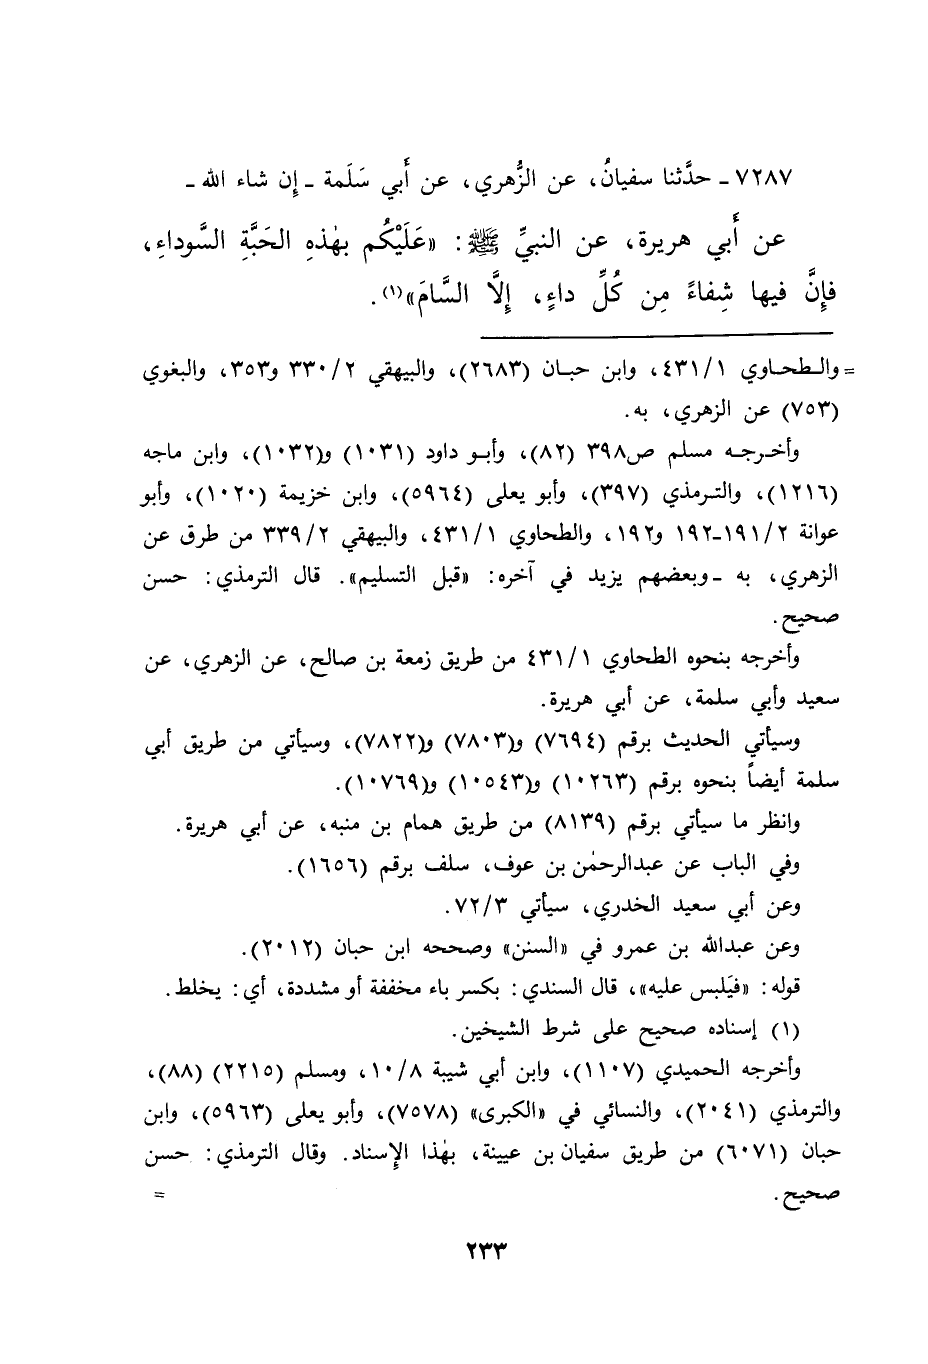 ٧٢٨٧ ـ حدَّثنا سفيانُ، عن الزُّهري، عن أَبي سَلَمة ـ إِن شاء الله ـ
عن أَبي هريرة، عن النبيِّ ﷺ: «عَلَيْكُم بهٰذهِ الحَبَّةِ السَّوداءِ،
فإِنَّ فيها شِفاءً مِن كُلِّ داءٍ، إِلَّا السَّامَ»(١).
= والـطحـاوي ٤٣١/١، وابن حبـان (٢٦٨٣)، والبيهقي ٣٣٠/٢ و٣٥٣، والبغوي
(٧٥٣) عن الزهري، به.
وأخـرجـه مسلم ص٣٩٨ (٨٢)، وأبـو داود (١٠٣١) و(١٠٣٢)، وابن ماجه
(١٢١٦)، والتـرمذي (٣٩٧)، وأبو يعلى (٥٩٦٤)، وابن خزيمة (١٠٢٠)، وأبو
عوانة ١٩١/٢ـ١٩٢ و١٩٢، والطحاوي ٤٣١/١، والبيهقي ٣٣٩/٢ من طرق عن
الزهري، به ـ وبعضهم يزيد في آخره: «قبل التسليم». قال الترمذي: حسن
صحيح.
وأخرجه بنحوه الطحاوي ٤٣١/١ من طريق زمعة بن صالح، عن الزهري، عن
سعيد وأبي سلمة، عن أبي هريرة.
وسيأتي الحديث برقم (٧٦٩٤) و(٧٨٠٣) و(٧٨٢٢)، وسيأتي من طريق أبي
سلمة أيضاً بنحوه برقم (١٠٢٦٣) و(١٠٥٤٣) و(١٠٧٦٩).
وانظر ما سيأتي برقم (٨١٣٩) من طريق همام بن منبه، عن أبي هريرة.
وفي الباب عن عبدالرحمٰن بن عوف، سلف برقم (١٦٥٦).
وعن أبي سعيد الخدري، سيأتي ٧٢/٣.
وعن عبدالله بن عمرو في «السنن» وصححه ابن حبان (٢٠١٢).
قوله: «فيَلبس عليه»، قال السندي: بكسر باء مخففة أو مشددة، أي: يخلط.
(١) إسناده صحيح على شرط الشيخين.
وأخرجه الحميدي (١١٠٧)، وابن أبي شيبة ١٠/٨، ومسلم (٢٢١٥) (٨٨)،
والترمذي (٢٠٤١)، والنسائي في «الكبرى» (٧٥٧٨)، وأبو يعلى (٥٩٦٣)، وابن
حبان (٦٠٧١) من طريق سفيان بن عيينة، بهٰذا الإِسناد. وقال الترمذي: حسن
صحيح. =
٢٣٣